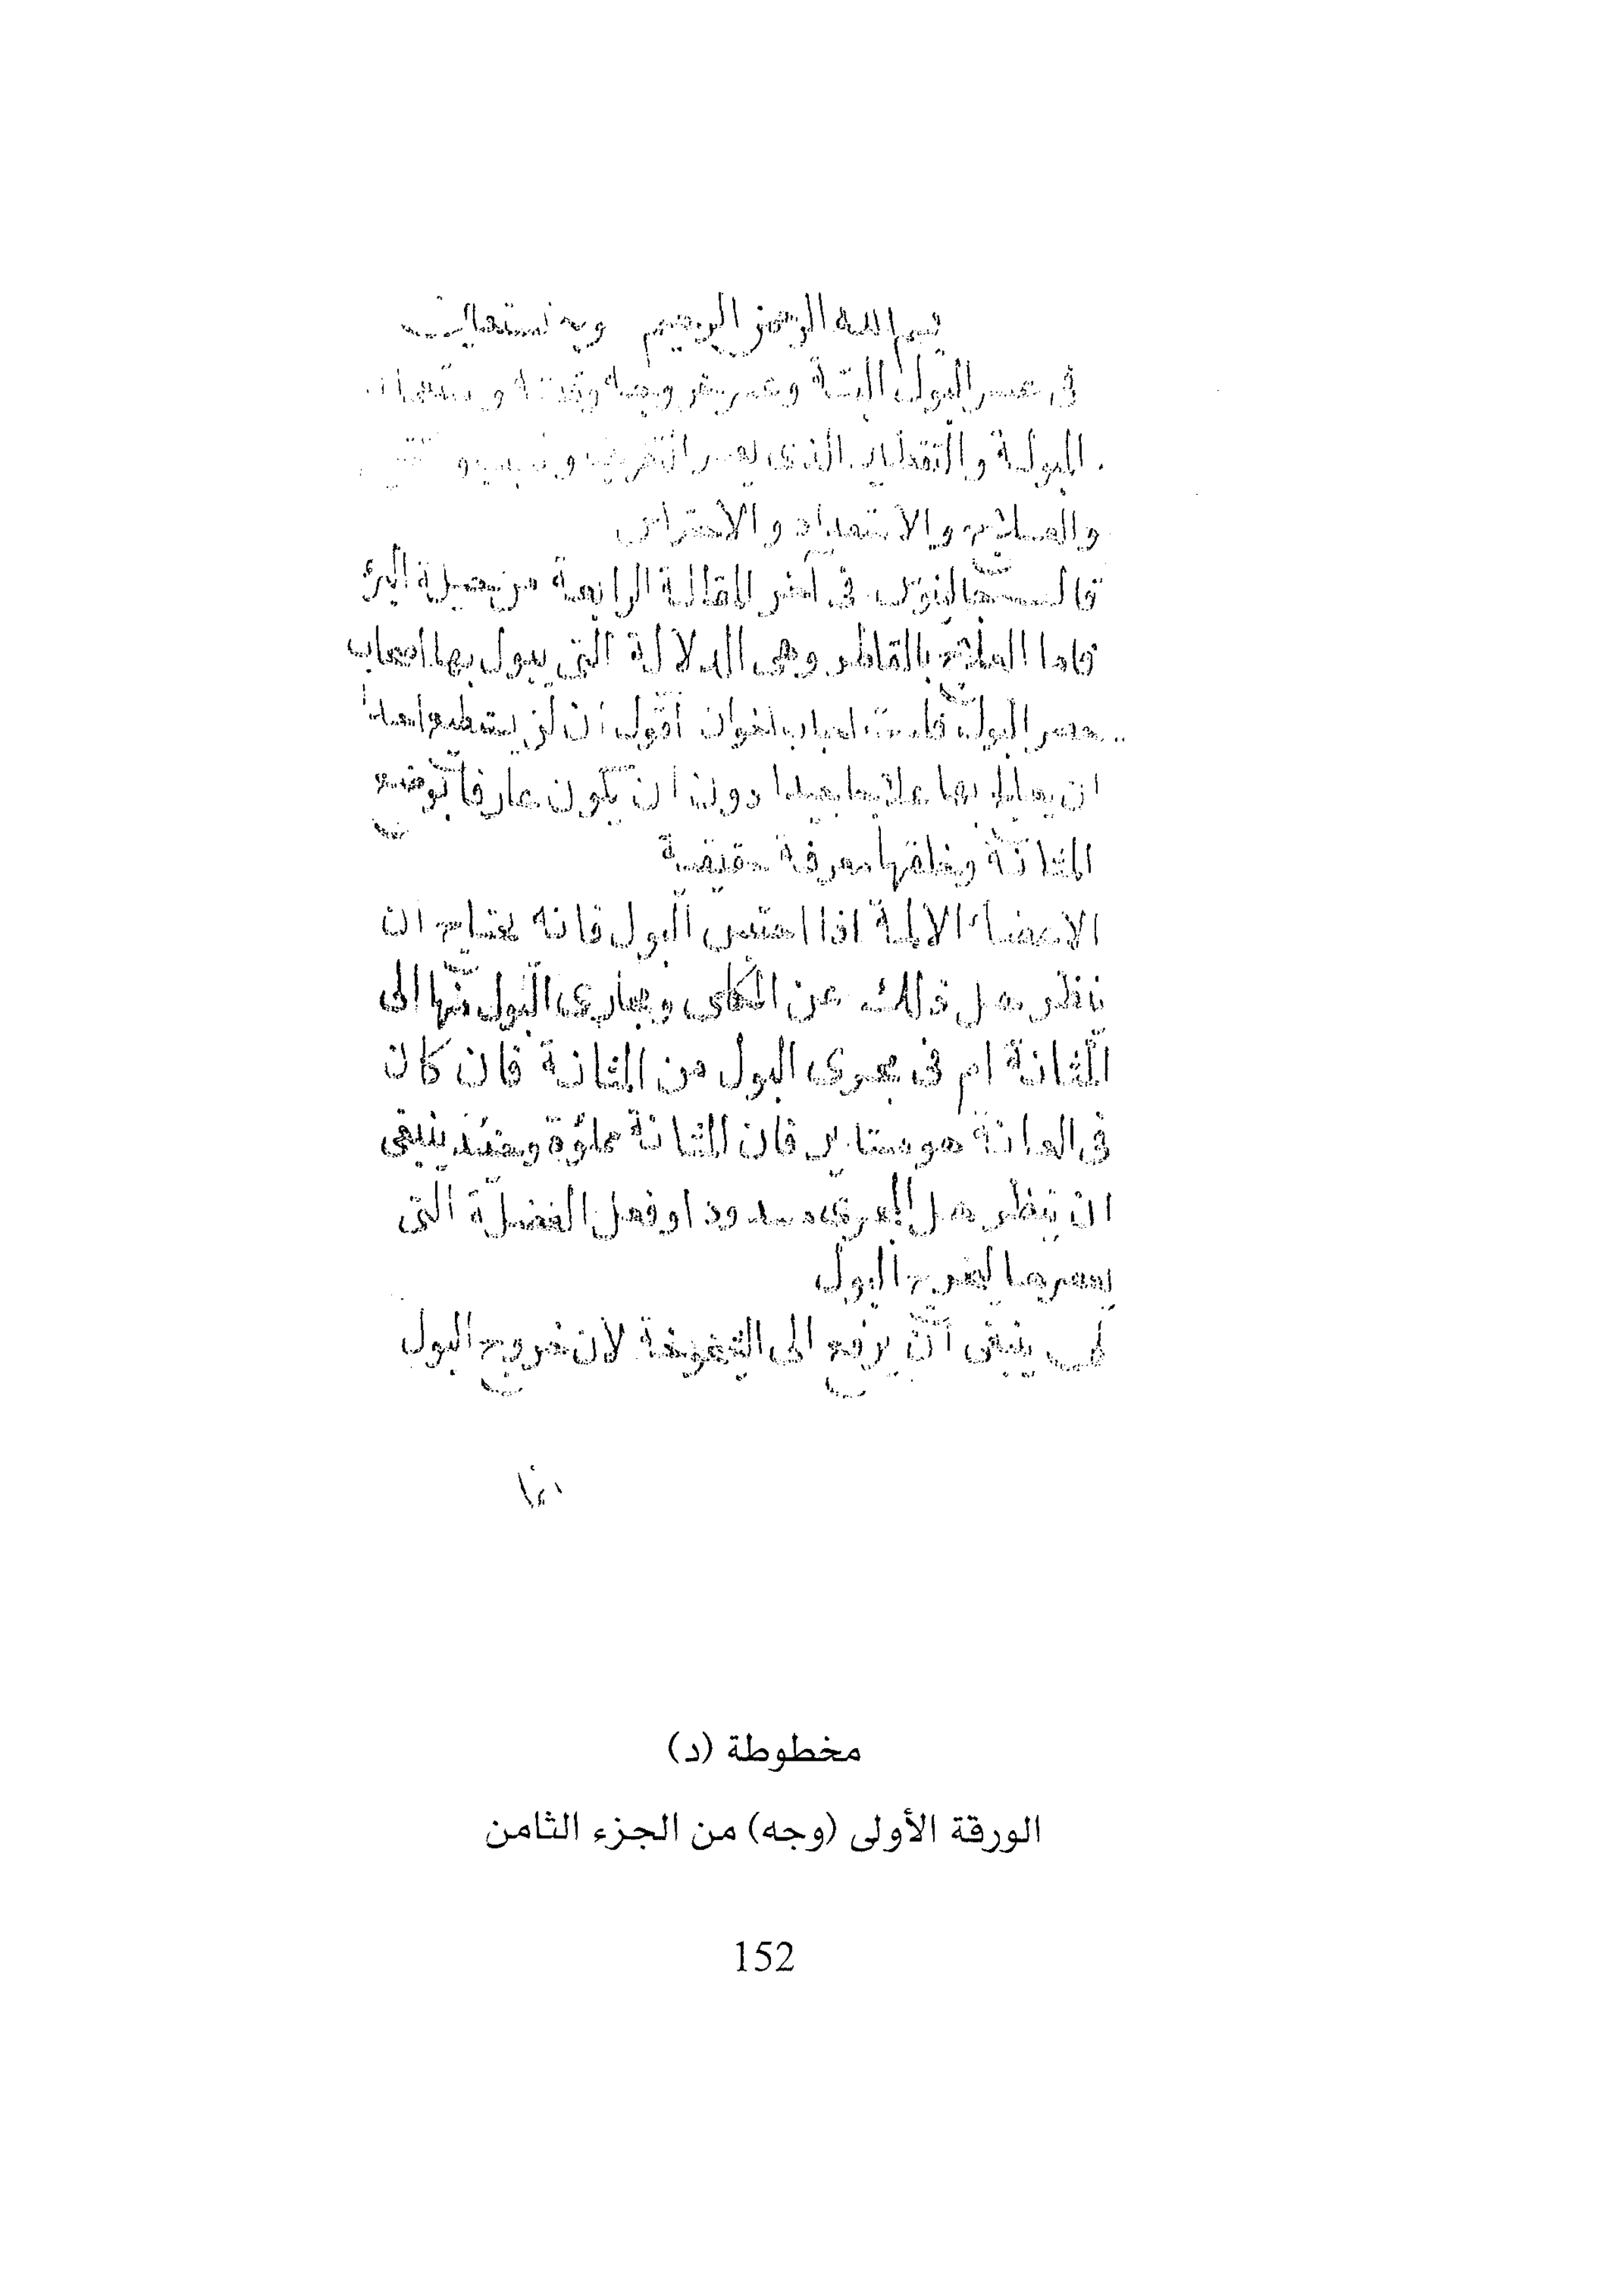 بسم الله الرحمن الرحيم وبه نستعين
في عسر البول البتة وعسر خروجه
المبولة والتقطير الذي يعسر
والعلاج والاستعداد والاحتراس
قال جالينوس في آخر المقالة الرابعة من حيلة البرء
فاما العلاج بالقاطاطير وهى الدلالة التى يبول بها اصحاب
عسر البول أقول ان لن يستطيع احدا
ان يعالج بها علاجا جيدا دون ان يكون عارفا بوضع
المثانة وخلقها معرفة حقيقية
الاعضا الالمة اذا احتبس البول فانه يحتاج ان
ننظر هل ذلك عن الكلى ومجارى البول منها الى
المثانة ام فى مجرى البول من المثانة فان كان
فى العانة فان المثانة مملؤة وحينئذ ينبغى
ان ننظر هل المجرى مسدود او فعل الفضلة التى
يعصرها ليخرج البول
لى ينبغى أن يرفع الى لان خروج البول
مخطوطة (د)
الورقة الأولى (وجه) من الجزء الثامن
152